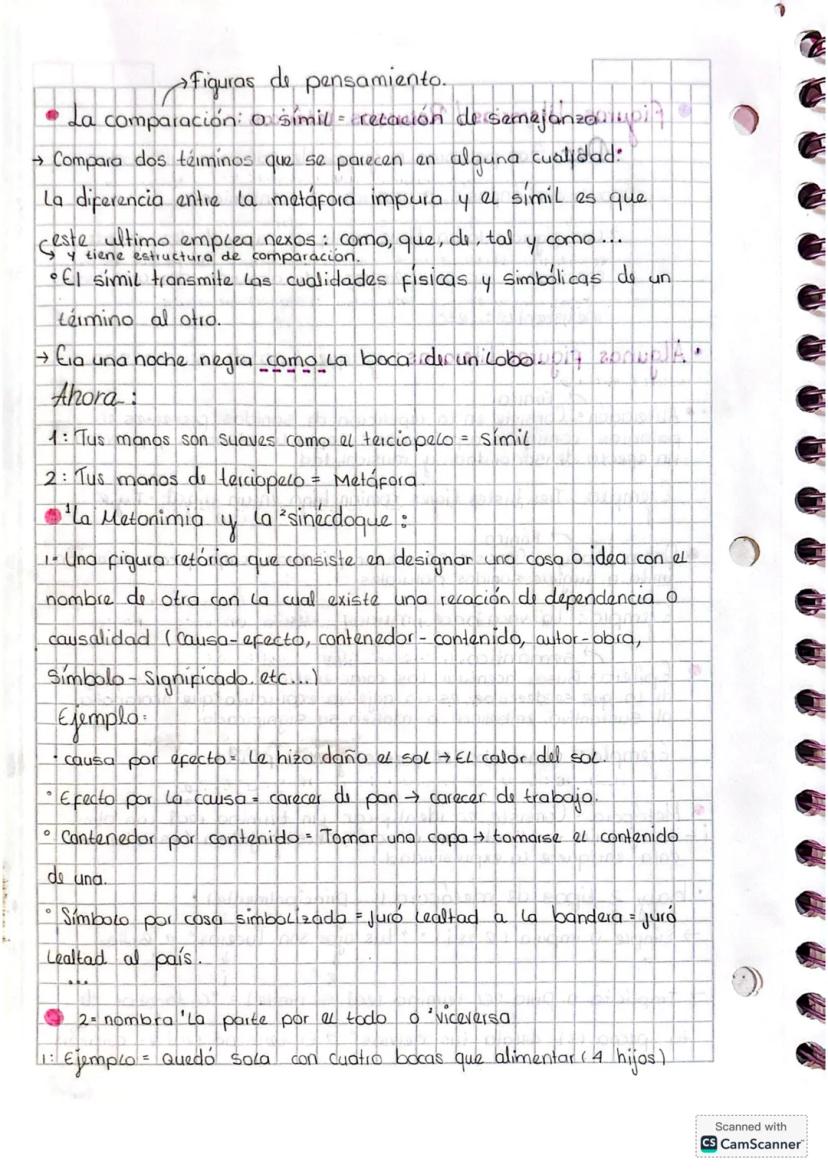 →Figuras de pensamiento.
• La comparación: o símil = relación de semejanza.
→ Compara dos términos que se parecen en alguna cualidad:
La diferencia entre la metáfora impura y el símil es que
este ultimo emplea nexos: como, que, de, tal y como...
↳ y tiene estructura de comparación.
° El símil transmite las cualidades físicas y simbólicas de un
término al otro.
→ Era una noche negra como la boca de un lobo.
Ahora:
1: Tus manos son suaves como el terciopelo = símil
2: Tus manos de terciopelo = Metáfora.
• ¹La Metonimia y la ²sinécdoque:
1- Una figura retórica que consiste en designar una cosa o idea con el
nombre de otra con la cual existe una relación de dependencia o
causalidad (Causa-efecto, contenedor-contenido, autor-obra,
Símbolo-Significado. etc...)
Ejemplo:
• causa por efecto = Le hizo daño el sol → El calor del sol.
° Efecto por la causa = carecer de pan → carecer de trabajo.
° Contenedor por contenido = Tomar una copa → tomarse el contenido
de una.
° Símbolo por cosa simbolizada = Juró lealtad a la bandera = juró
lealtad al país.
...
• 2= nombra ¹La parte por el todo o ²viceversa
1: Ejemplo = Quedó sola con cuatro bocas que alimentar (4 hijos)
Scanned with
CS CamScanner